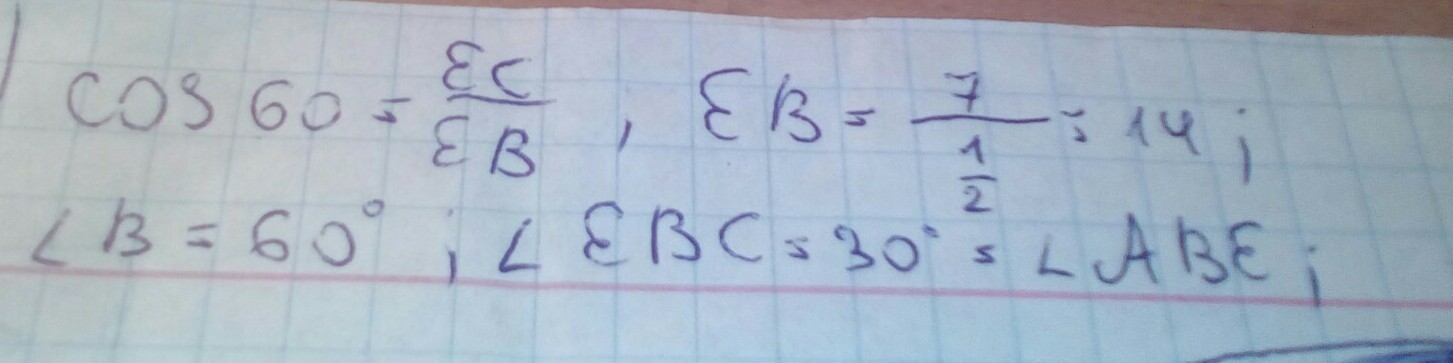 cos 60 = EC/EB, EB = 7/(1/2) = 14;
∠B = 60°; ∠EBC = 30° = ∠ABE;